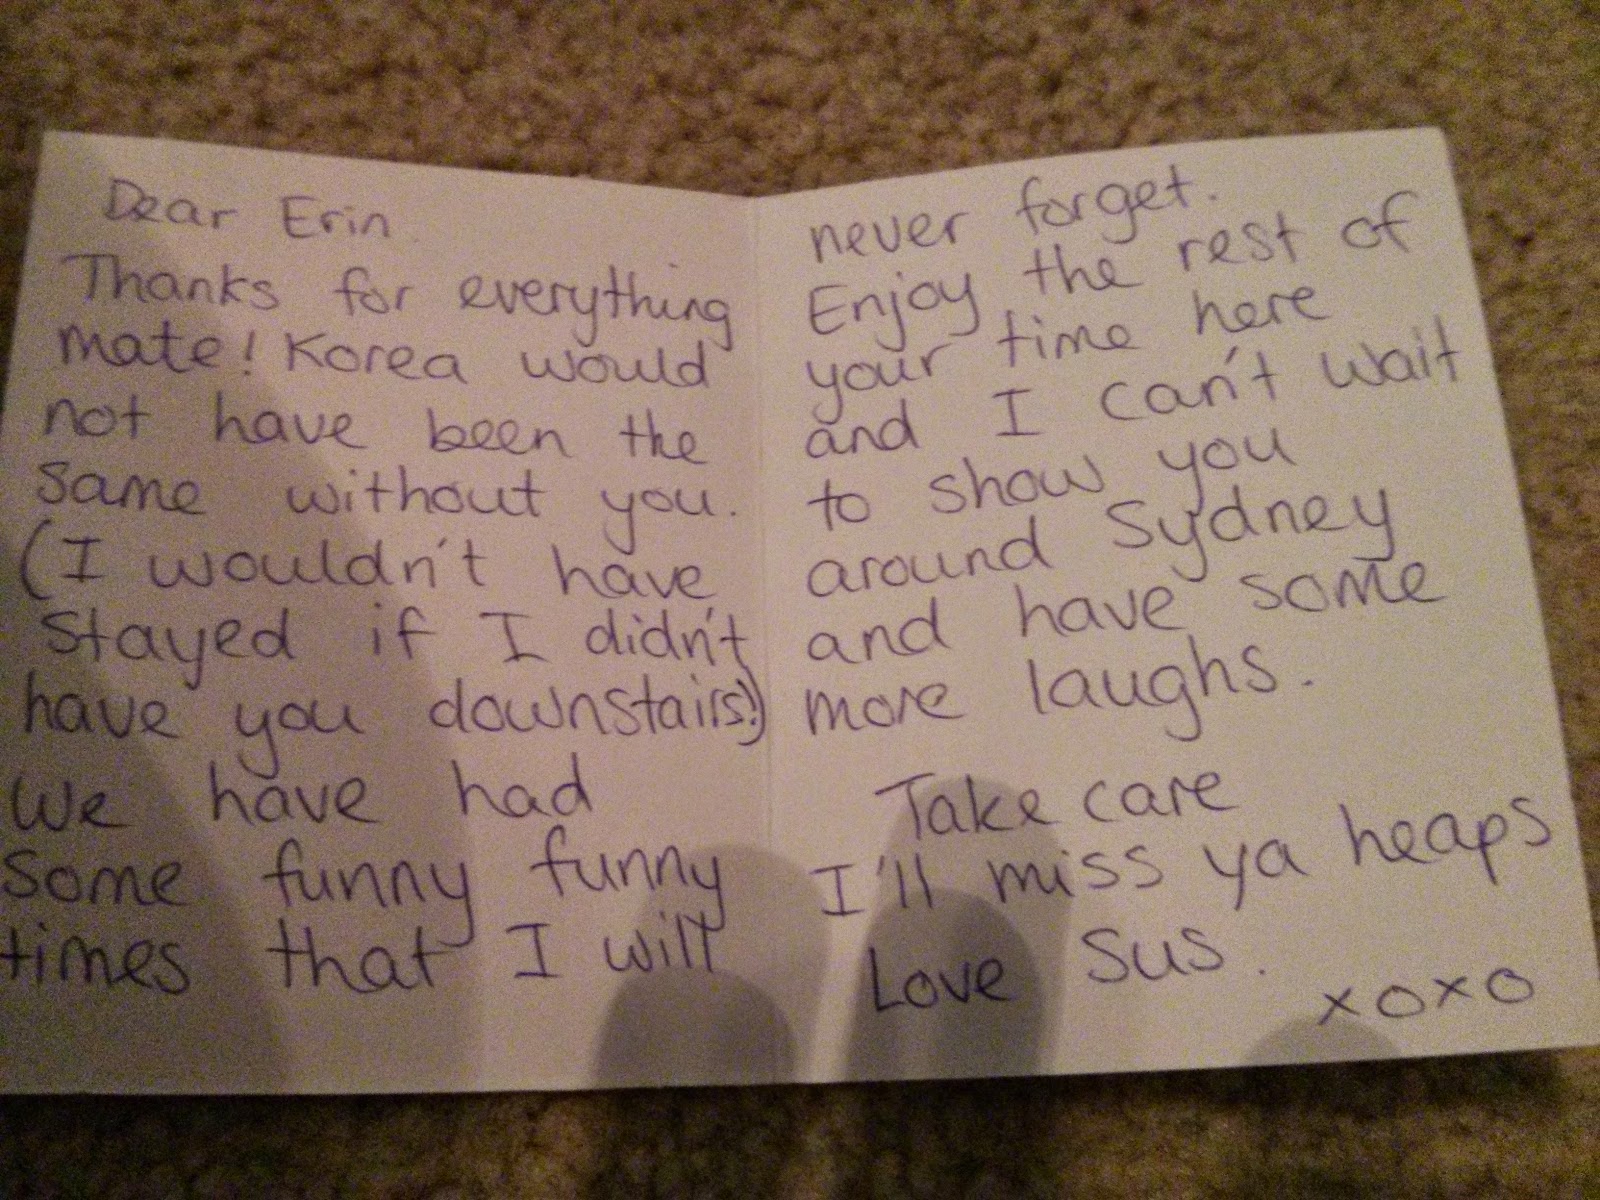 Dear Erin
Thanks for everything
mate! Korea would
not have been the
same without you.
(I wouldn't have
stayed if I didn't
have you downstairs!)
We have had
some funny funny
times that I will
never forget.
Enjoy the rest of
your time here
and I can't wait
to show you
around Sydney
and have some
more laughs.
Take care
I'll miss ya heaps
Love Sus.
xoxo